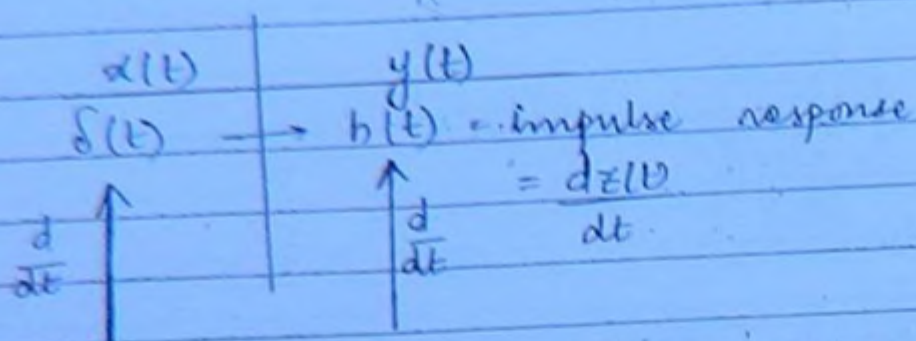 x(t) y(t)
δ(t) → h(t) = impulse response
= dz(t)/dt
d/dt d/dt